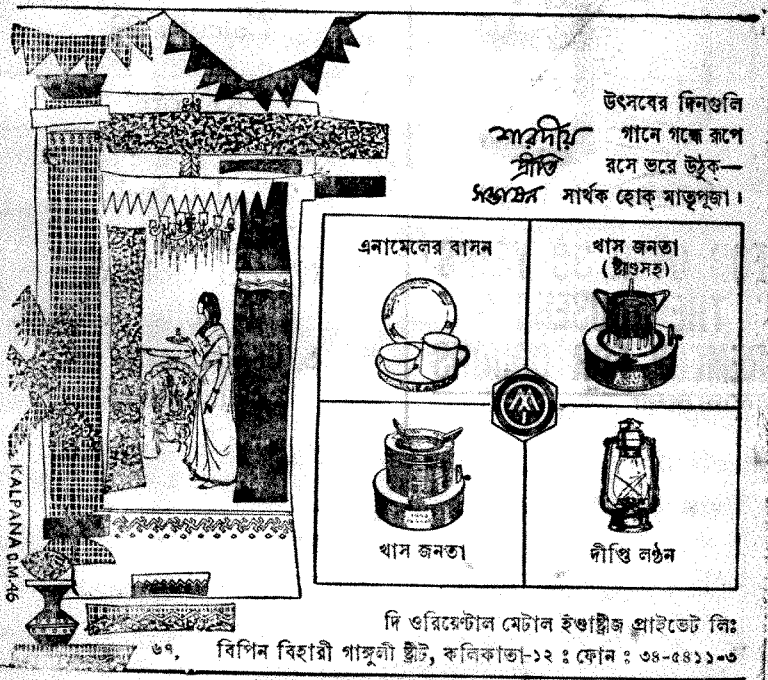 উৎসবের দিনগুলি
শারদীয় গানে গন্ধে রূপে
প্রীতি রসে ভরে উঠুক—
সম্ভাষন সার্থক হোক্ মাতৃপূজা।
এনামেলের বাসন
খাস জনতা
(ষ্ট্যাণ্ডসহ)
খাস জনতা
দীপ্তি লণ্ঠন
KALPANA O.M.46
দি ওরিয়েণ্টাল মেটাল ইণ্ডাষ্ট্রীজ প্রাইভেট লিঃ
৬৭, বিপিন বিহারী গাঙ্গুলী ষ্ট্রীট, কলিকাতা-১২ : ফোন : ৩৪-৫৪১১-৩